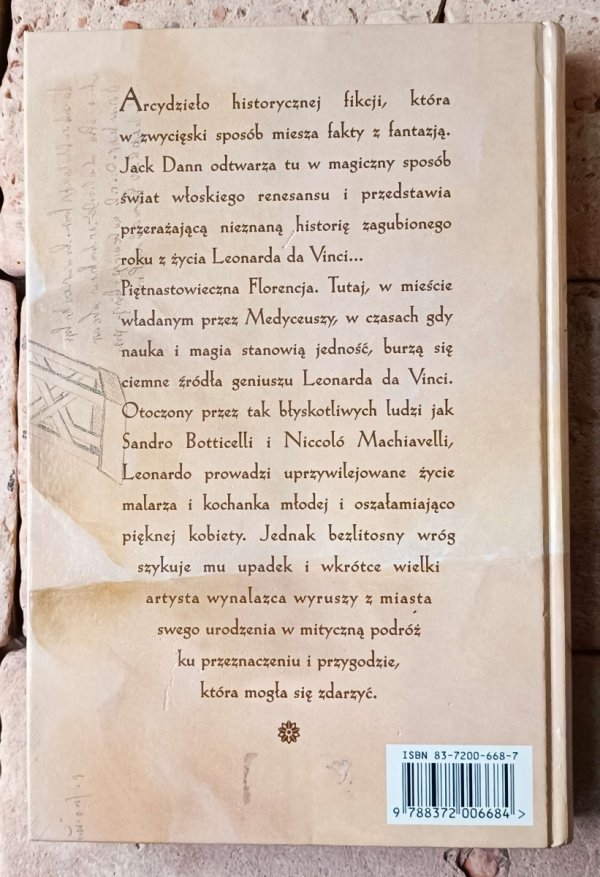 Arcydzieło historycznej fikcji, która
w zwycięski sposób miesza fakty z fantazją.
Jack Dann odtwarza tu w magiczny sposób
świat włoskiego renesansu i przedstawia
przerażającą nieznaną historię zagubionego
roku z życia Leonarda da Vinci...
Piętnastowieczna Florencja. Tutaj, w mieście
władanym przez Medyceuszy, w czasach gdy
nauka i magia stanowią jedność, burzą się
ciemne źródła geniuszu Leonarda da Vinci.
Otoczony przez tak błyskotliwych ludzi jak
Sandro Botticelli i Niccoló Machiavelli,
Leonardo prowadzi uprzywilejowane życie
malarza i kochanka młodej i oszałamiająco
pięknej kobiety. Jednak bezlitosny wróg
szykuje mu upadek i wkrótce wielki
artysta wynalazca wyruszy z miasta
swego urodzenia w mityczną podróż
ku przeznaczeniu i przygodzie,
która mogła się zdarzyć.
ISBN 83-7200-668-7
9 788372 006684 >